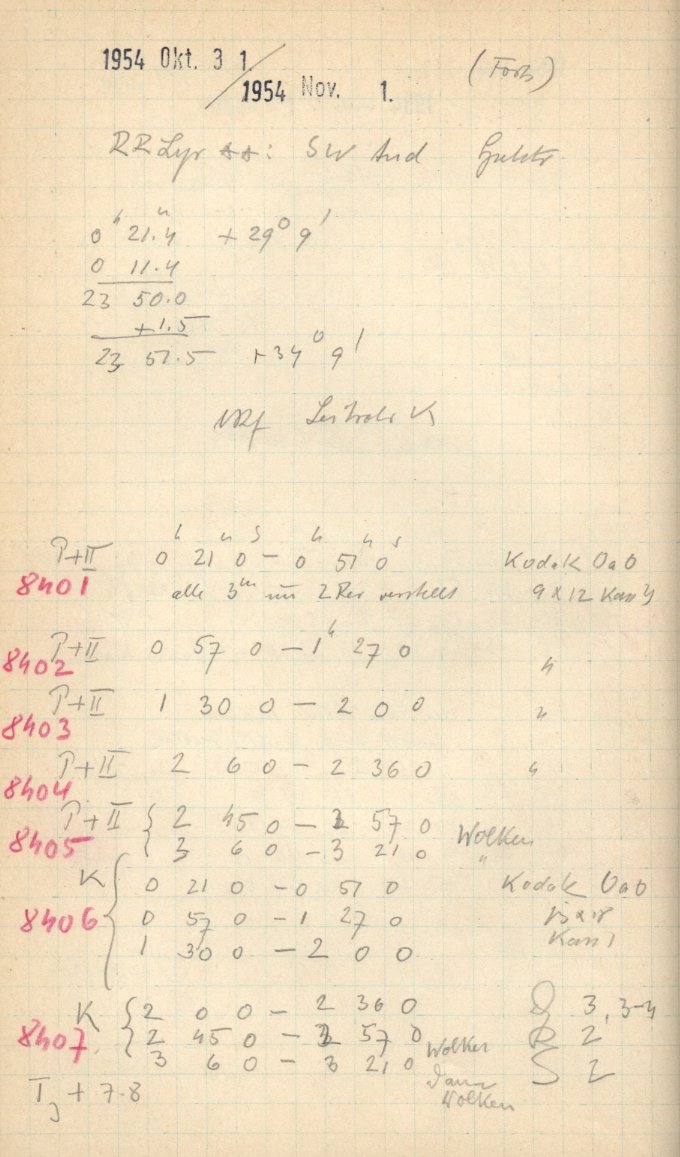 1954 Okt. 3 1.
(Forts)
1954 Nov. 1.
RR Lyr **: SW And
0 h 21.4 m + 29° 9'
0 11.4
23 50.0
+1.5
23 51.5 +34° 9'
Leitrohr K
P+II 0 h 21 m 0 s - 0 h 51 m 0 s Kodak OaO
8401 alle 3 m um 2 Rev verstellt 9 x 12 Kass
P+II 0 57 0 - 1 h 27 0 "
8402
P+II 1 30 0 - 2 0 0 "
8403
P+II 2 6 0 - 2 36 0 "
8404
P+II { 2 45 0 - 2 57 0 Wolken
8405 { 3 6 0 - 3 21 0 "
K { 0 21 0 - 0 51 0 Kodak OaO
8406 0 57 0 - 1 27 0 13 x 18
1 30 0 - 2 0 0 Kass 1
K { 2 0 0 - 2 36 0 3, 3-4
8407 { 2 45 0 - 2 57 0 Wolken R 2
3 6 0 - 3 21 0 dann Wolken S 2
T + 7.8